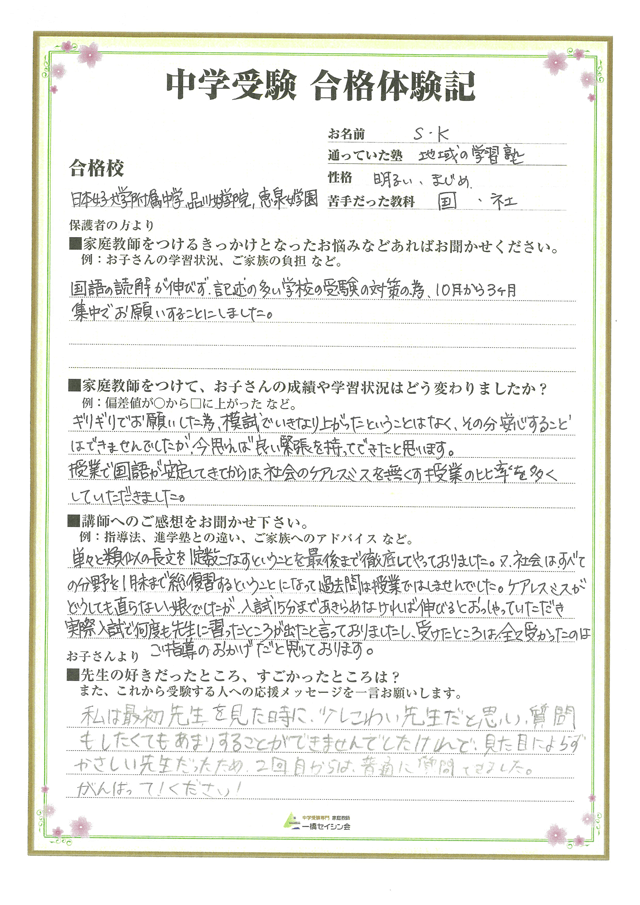 中学受験 合格体験記
お名前 S・K
通っていた塾 地域の学習塾
合格校
性格 明るい、まじめ
日本女子大学附属中学, 品川女子学院, 恵泉女学園
苦手だった教科 国・社
保護者の方より
■家庭教師をつけるきっかけとなったお悩みなどあればお聞かせください。
例：お子さんの学習状況、ご家族の負担 など。
国語の読解が伸びず、記述の多い学校の受験の対策の為、10月から3ヶ月
集中でお願いすることにしました。
■家庭教師をつけて、お子さんの成績や学習状況はどう変わりましたか？
例：偏差値が○から□に上がった など。
ギリギリでお願いした為、模試でいきなり上がったということはなく、その分安心すること
はできませんでしたが、今思えば良い緊張を持ってできたと思います。
授業で国語が安定してきてからは、社会のケアレスミスを無くす授業の比率を多く
していただきました。
■講師へのご感想をお聞かせ下さい。
例：指導法、進学塾との違い、ご家族へのアドバイス など。
単々と類似の長文を1定数こなすということを最後まで徹底してやっておりました。又、社会はすべて
の分野を1月末まで総復習するということになって過去問は授業ではしませんでした。ケアレスミスが
どうしても直らない娘でしたが、入試15分まであきらめなければ伸びるとおっしゃっていただき
実際入試で何度も先生に習ったところが出たと言っておりましたし、受けたところは全て受かったのは
ご指導のおかげだと思っております。
お子さんより
■先生の好きだったところ、すごかったところは？
また、これから受験する人への応援メッセージを一言お願いします。
私は最初先生を見た時に、少しこわい先生だと思い、質問
もしたくてもあまりすることができませんでしたけれど、見た目によらず
やさしい先生だったため、2回目からは、普通に質問できました。
がんばって！ください！
中学受験専門 家庭教師
一橋セイシン会